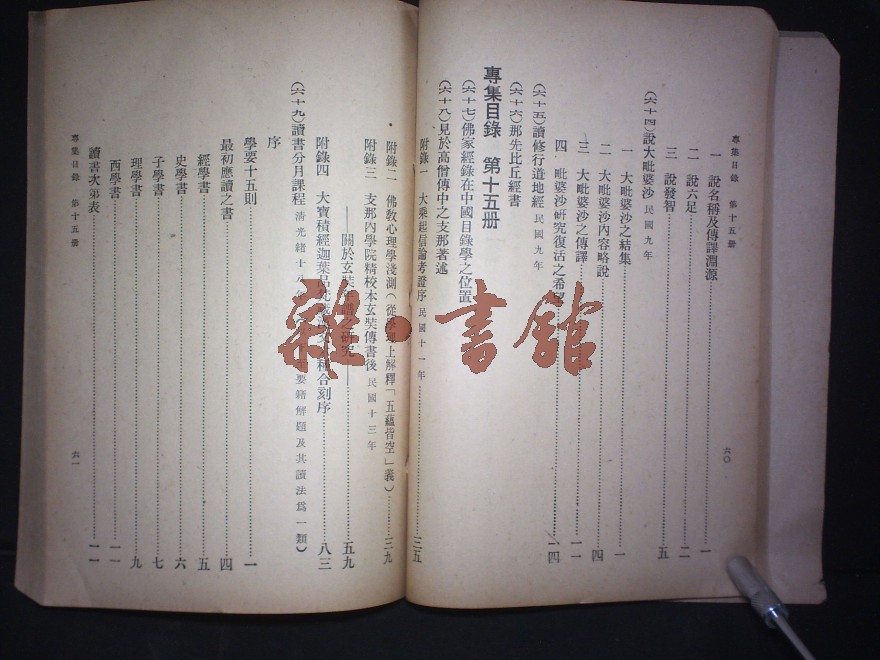 專集目錄 第十五册
六〇
一 說名稱及傳譯淵源……一
二 說六足……二
三 說發智……五
(六十四)說大毗婆沙 民國九年
一 大毗婆沙之結集……一
二 大毗婆沙內容略說……四
三 大毗婆沙之傳譯……一一
四 毗婆沙研究復活之希望……一四
(六十五)讀修行道地經 民國九年
(六十六)那先比丘經書
專集目錄 第十五册
(六十七)佛家經錄在中國目錄學之位置
(六十八)見於高僧傳中之支那著述
附錄一 大乘起信論考證序 民國十一年……三五
附錄二 佛教心理學淺測(從學理上解釋「五蘊皆空」義)……三九
附錄三 支那內學院精校本玄奘傳書後 民國十三年
——關於玄奘年譜之研究——……五九
附錄四 大寶積經迦葉品梵藏漢文種合刻序……八三
(六十九)讀書分月課程 清光緒十八年 要籍解題及其讀法爲一類)
序
學要十五則……一
最初應讀之書……四
經學書……五
史學書……六
子學書……七
理學書……九
西學書……一一
讀書次第表……一一
專集目錄 第十五册
六一
雜·書館